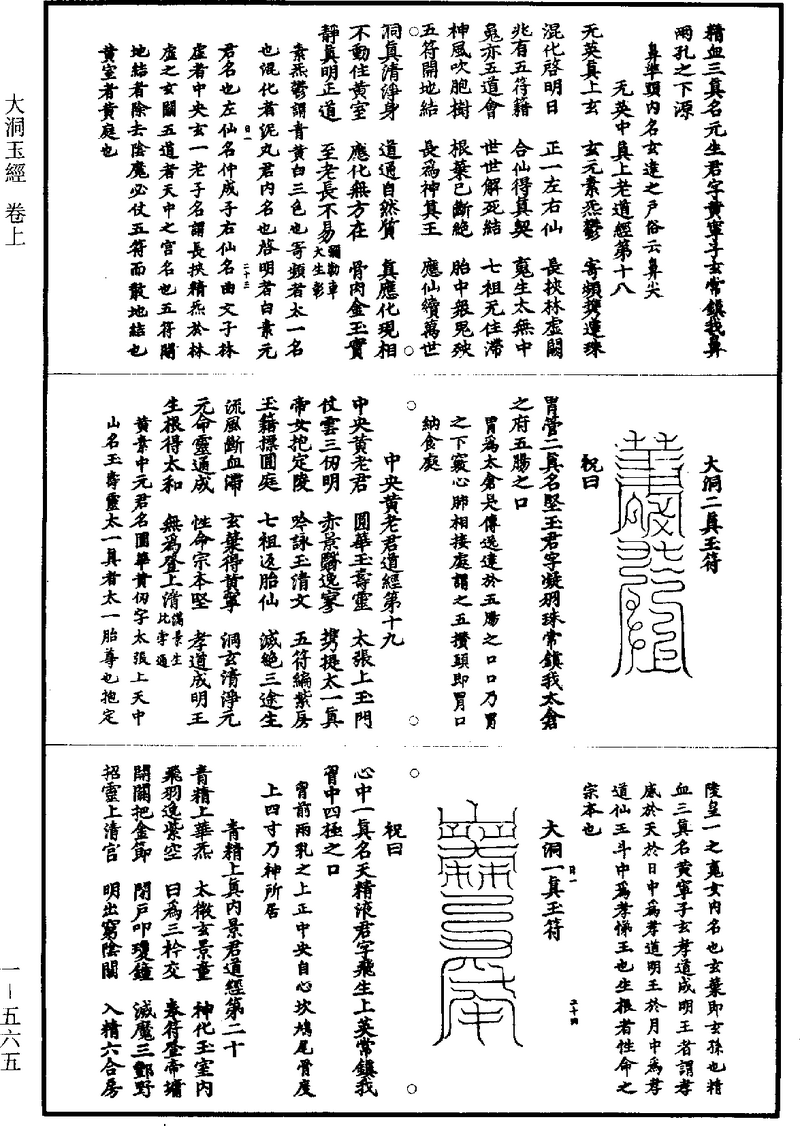 大洞玉經 卷上
一—五六五
精血三真名元生君字黄寧子玄常鎮我鼻
兩孔之下源
鼻準頭内名玄達之戶俗云鼻尖
无英中真上老道經第十八
无英真上玄 玄元素炁鬱 寄頻携蓮珠
混化啓明日 正一左右仙 長挾林虛闕
兆有五符籍 合仙得真契 䰟生太無中
䰟亦五道會 世世解死結 七祖无住滯
神風吹胞樹 根葉已斷絶 胎中裒𠒋殃
五符開地結 長爲神真王 應仙續萬世
洞真清淨身 道通自然質 真應化現相
不動住黄室 應化無方在 骨肉金玉實
靜真明正道 至老長不易 彌勒車大生彰
素炁鬱謂青黄白三色也寄頻者太一名
也混化者泥丸君内名也啓明者白素元
君名也左仙名仲成子右仙名曲文子林
虛者中央玄一老子名謂長挾精炁於林
虛之玄闕五道者天中之宫名也五符開
地結者除去陰魔必仗五符而散地結也
黄室者黄庭也
日一
二十三
大洞二真玉符
祝曰
胃管二真名堅玉君字凝羽珠常鎮我太倉
之府五腸之口
胃爲太倉是傳送達於五腸之口口乃胃
之下竅心肺相接處謂之五攢頭即胃口
納食處
中央黄老君道經第十九
中央黄老君 圓華玉壽靈 太張上玉門
仗雲三仞明 赤景翳逸寥 携提太一真
帝女抱定陵 吟詠玉清文 五符編紫房
玉籍標圓庭 七祖返胎仙 滅絶三途生
流風斷血滯 玄葉得黄寧 洞玄清淨元
元命靈通成 性命宗本堅 孝道成明王
生根得太和 無爲登上清 滿景生比孛通
黄素中元君名圓華黄仞字太張上天中
山名玉壽靈太一真者太一胎尊也抱定
陵皇一之䰟女内名也玄葉即玄孫也精
血三真名黄寧子玄孝道成明王者謂孝
感於天於日中爲孝道明王於月中爲孝
道仙王斗中爲孝悌王也生根者性命之
宗本也
日一
二十四
大洞一真玉符
祝曰
心中一真名天精液君字飛生上英常鎮我
胷中四極之口
胷前兩乳之上正中央自心坎鳩尾骨度
上四寸乃神所居
青精上真内景君道經第二十
青精上華炁 太微玄景童 神化玉室内
飛羽逸紫空 日爲三衿交 奉符登帝墉
開關把金節 閉戶叩瓊鐘 滅魔三酆野
招靈上清宫 明出窮陰關 入精六合房